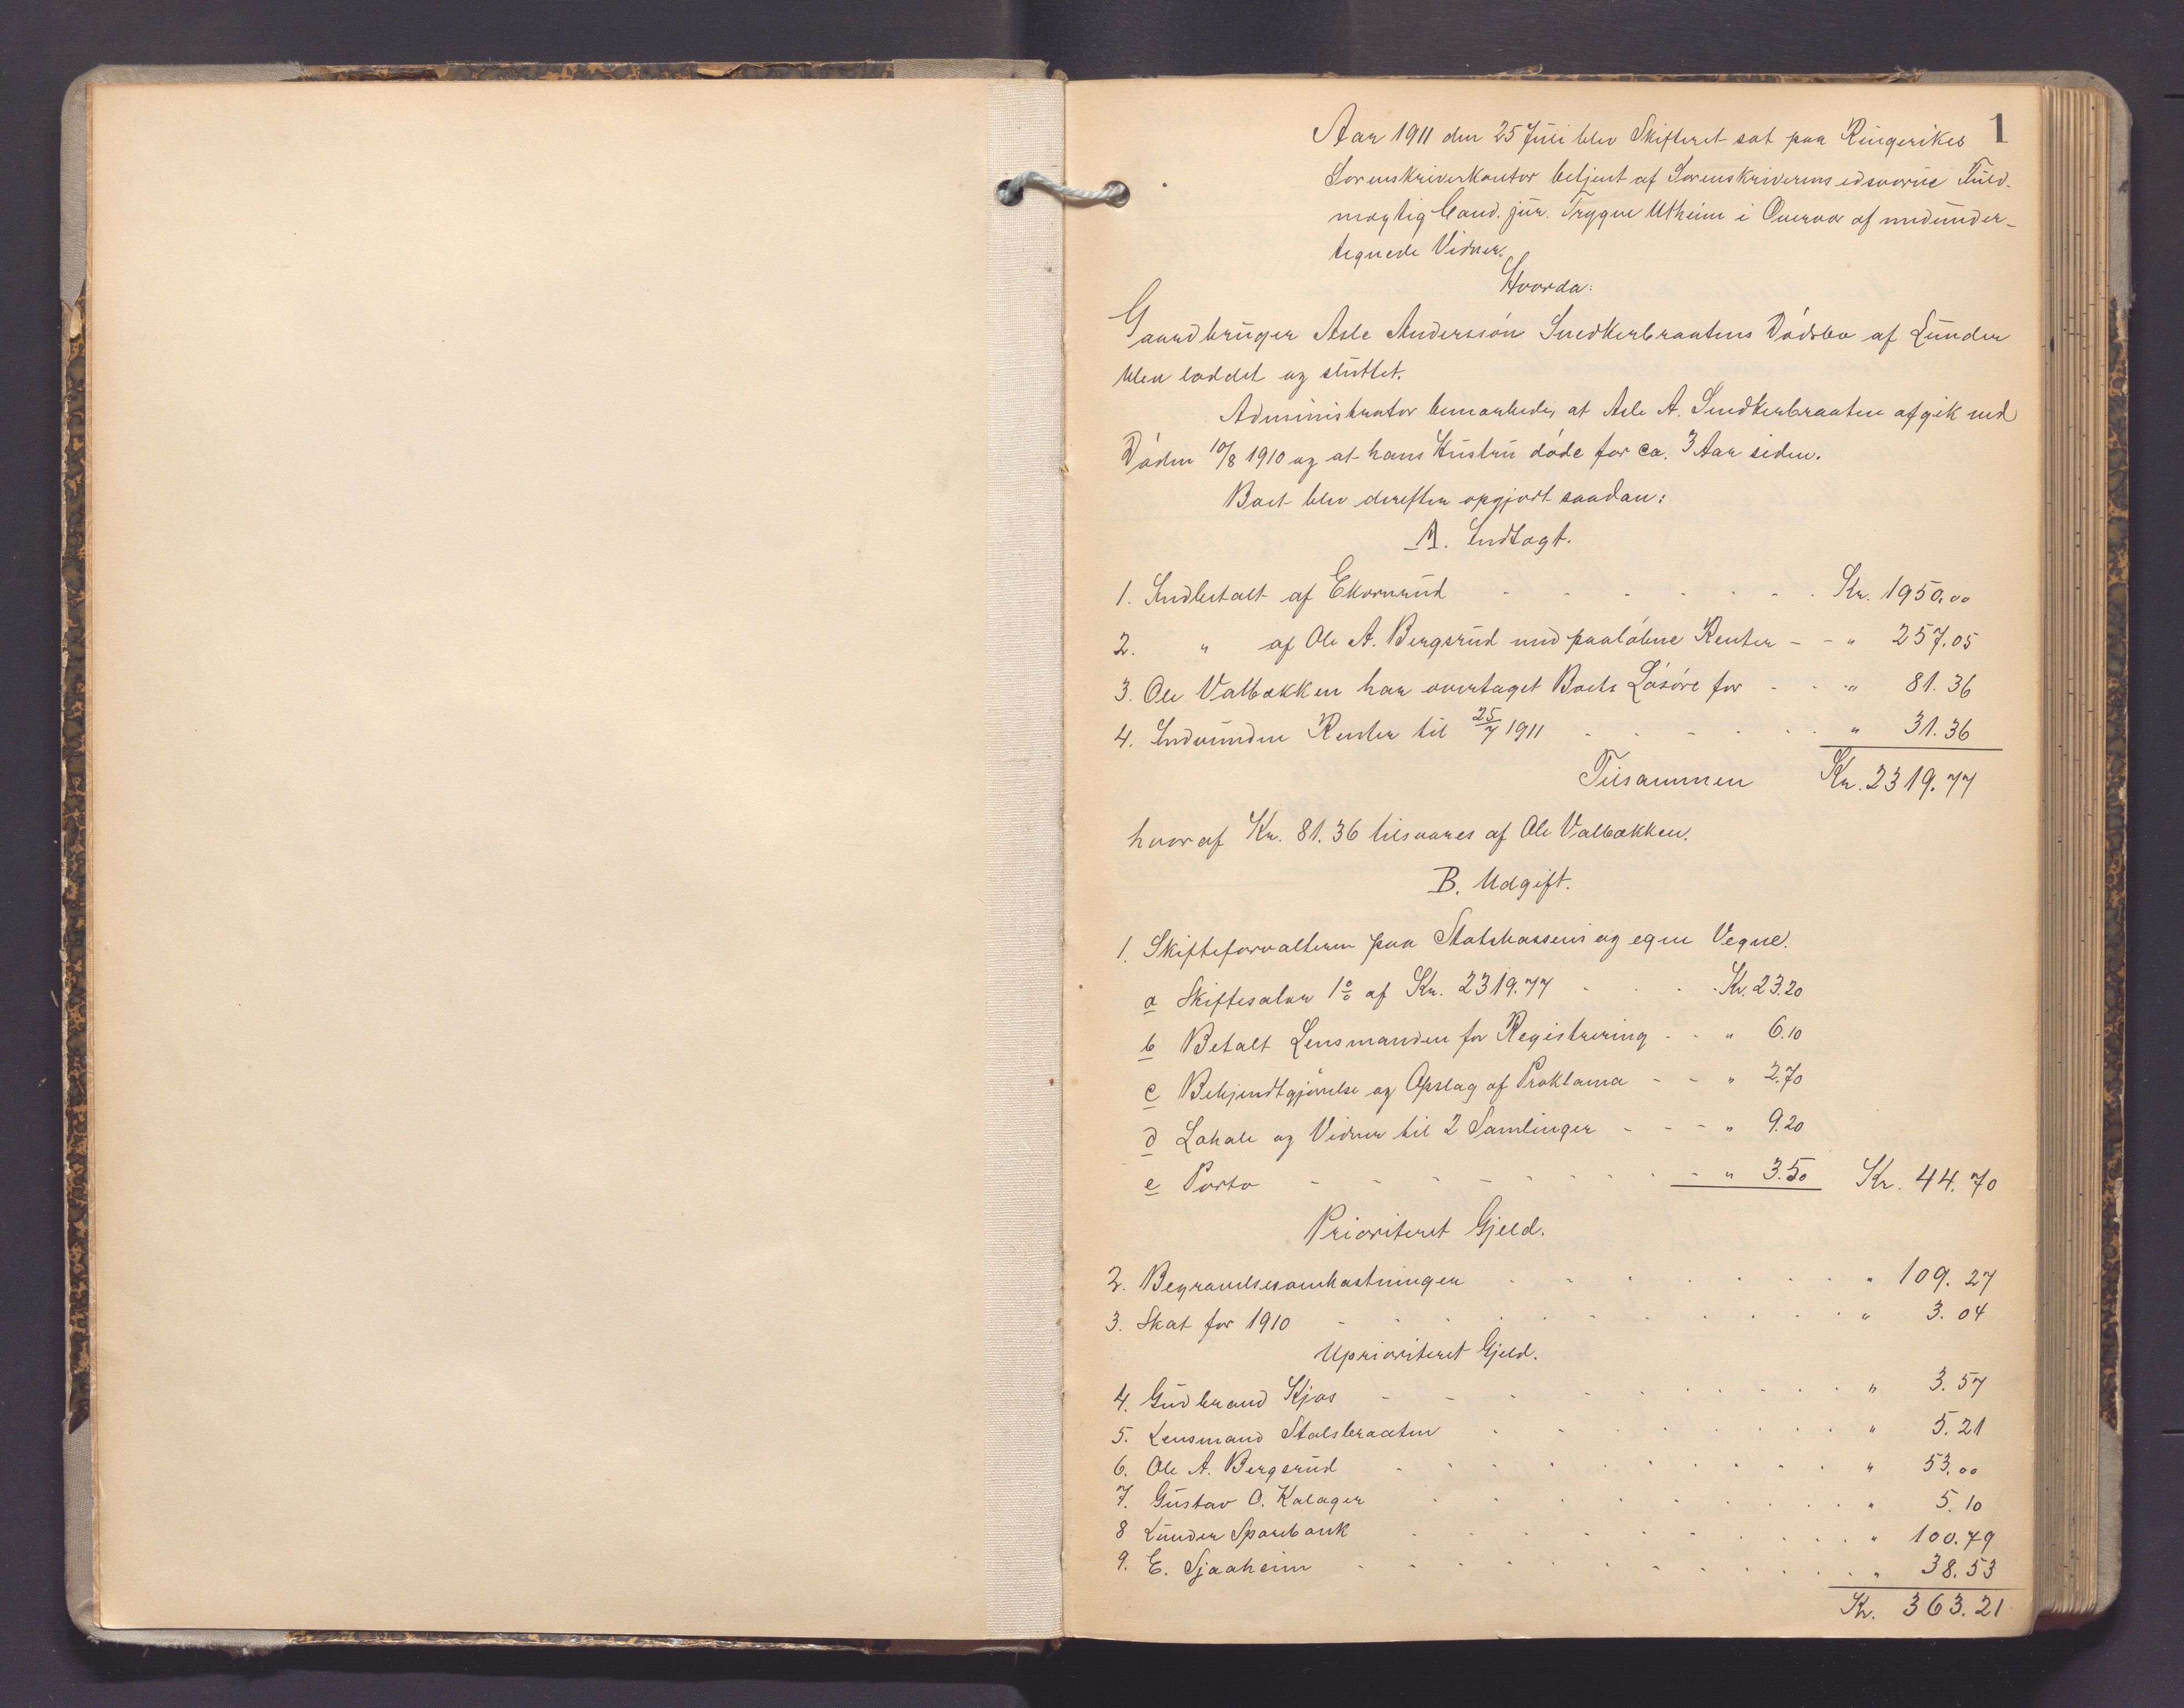 1
Aar 1911 den 25 Juli blev Skifteret sat paa Ringerikes
Sorenskriverkontor betjent af Sorenskriverens edsvorne Fuld-
mægtig Cand. jur. Trygve Utheim i Overvær af medunder-
tegnede Vidner.
Hvorda:
Gaardbruger Asle Anderssøn Snedkerbraatens Dødsbo af Lunder
blev loddet og sluttet.
Administrator bemærkede, at Asle A. Snedkerbraaten afgik ved
Døden 10/8 1910 og at hans Hustru døde for ca. 3 Aar siden.
Boet blev derefter opgjort saadan:
A. Indtægt.
1. Indbetalt af Ekornrud - - - - - - Kr. 1950.00
2. " af Ole A. Bergsrud med paaløbne Renter - - " 257.05
3. Ole Valbækken har overtaget Boets Løsøre for - - " 81.36
4. Indvundne Renter til 25/7 1911 - - - - - " 31.36
Tilsammen Kr. 2319.77
hvoraf Kr. 81.36 tilsvares af Ole Valbækken.
B. Udgift.
1. Skifteforvalteren paa Statskassens og egne Vegne.
a Skiftesalær 1% af Kr. 2319.77 - - - Kr. 23.20
b Betalt Lensmanden for Registrering - - " 6.10
c Bekjendtgjørelse og Opslag af Proklama - - " 2.70
d Lokale og Vidner til 2 Samlinger - - - " 9.20
e Porto - - - - - - - - " 3.50 Kr. 44.70
Prioriteret Gjeld.
2. Begravelsesomkostninger - - - - - - - " 109.27
3. Skat for 1910 - - - - - - - - - - " 3.04
Uprioriteret Gjeld.
4. Gudbrand Kjos - - - - - - - - - " 3.57
5. Lensmand Stalsbraaten - - - - - - - " 5.21
6. Ole A. Bergsrud - - - - - - - - - " 53.00
7. Gustav O. Kalager - - - - - - - - " 5.10
8 Lunder Sparebank - - - - - - - - " 100.79
9. E. Sjaaheim - - - - - - - - - - " 38.53
Kr. 363.21